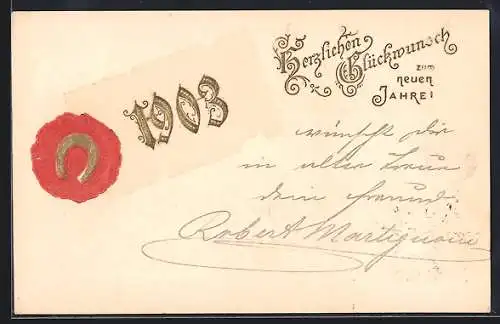 1903
Herzlichen
Glückwunsch
zum
neuen
Jahre!
wünscht Dir
in alter Treue
dein Freund
Robert